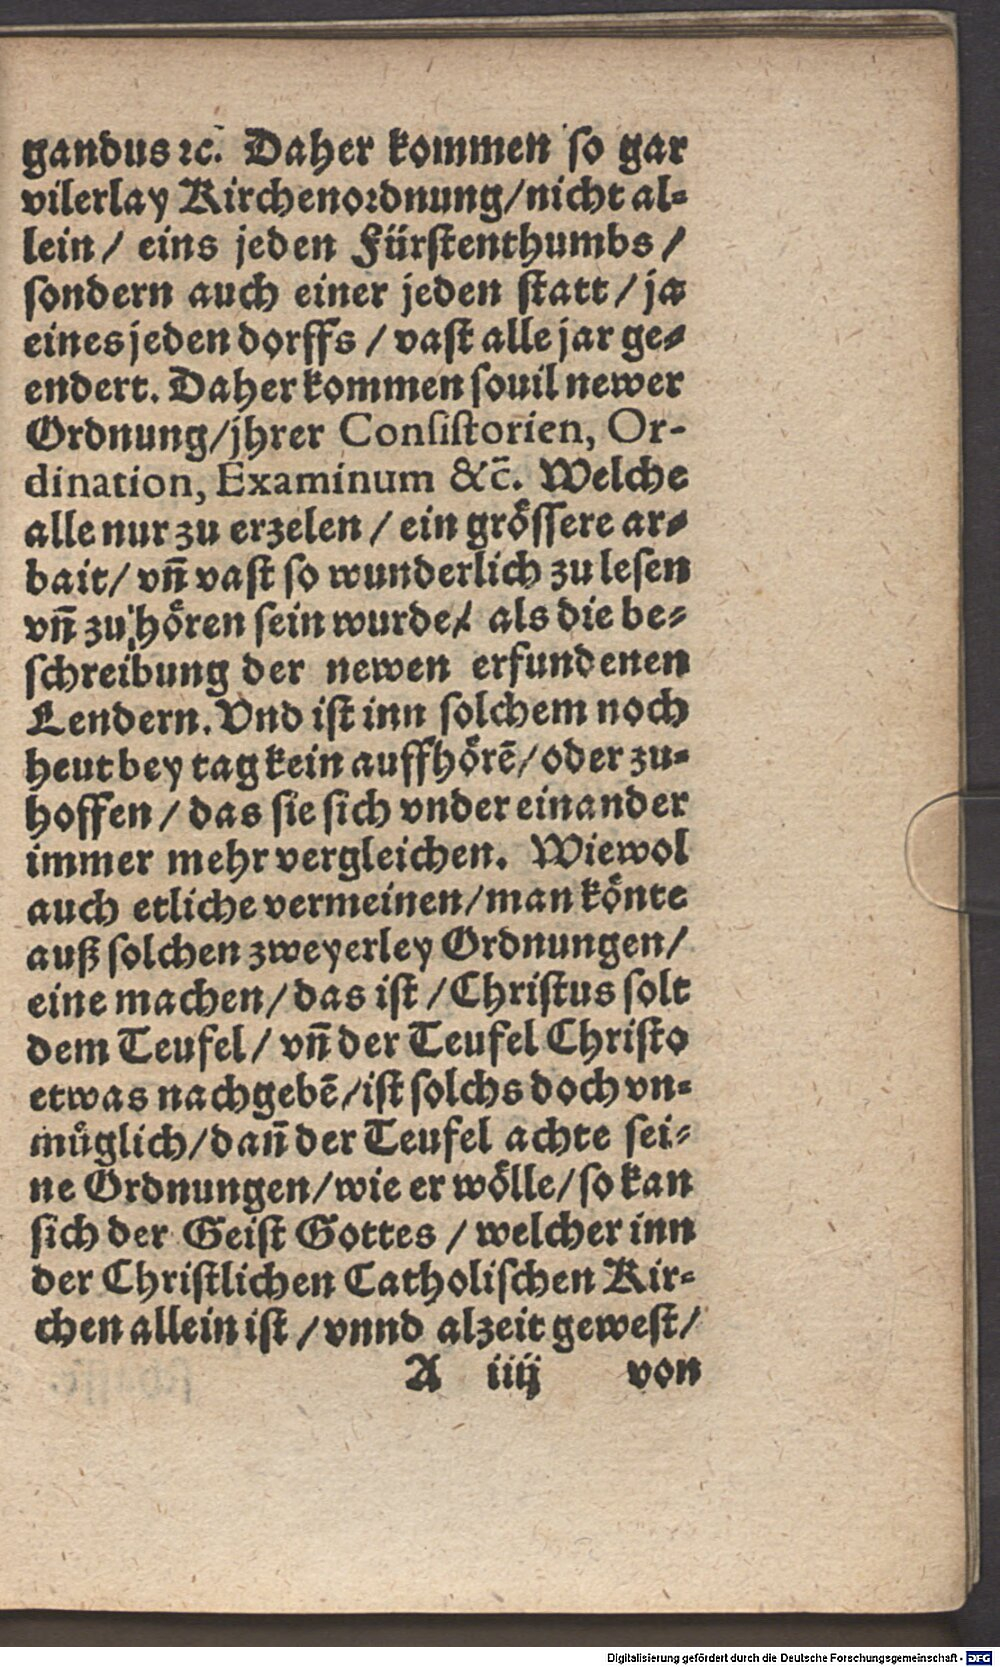 gandus ꝛc. Daher kommen so gar
vilerlay Kirchenordnung/nicht al⸗
lein / eins jeden Fürstenthumbs /
sondern auch einer jeden statt / ja
eines jeden dorffs / vast alle jar ge⸗
endert. Daher kommen souil newer
Ordnung/jhrer Consistorien, Or-
dination, Examinum &c̃. Welche
alle nur zu erzelen / ein grössere ar⸗
bait/ vñ vast so wunderlich zu lesen
vñ zu hören sein wurde/ als die be⸗
schreibung der newen erfundenen
Lendern. Vnd ist inn solchem noch
heut bey tag kein auffhörẽ/ oder zu⸗
hoffen / das sie sich vnder einander
immer mehr vergleichen. Wiewol
auch etliche vermeinen/man könte
auß solchen zweyerley Ordnungen/
eine machen/das ist /Christus solt
dem Teufel/ vñ der Teufel Christo
etwas nachgebẽ/ist solchs doch vn⸗
müglich/dañ der Teufel achte sei⸗
ne Ordnungen/wie er wölle/so kan
sich der Geist Gottes / welcher inn
der Christlichen Catholischen Kir⸗
chen allein ist /vnnd alzeit gewest/
A iiij von
Digitalisierung gefördert durch die Deutsche Forschungsgemeinschaft - DFG